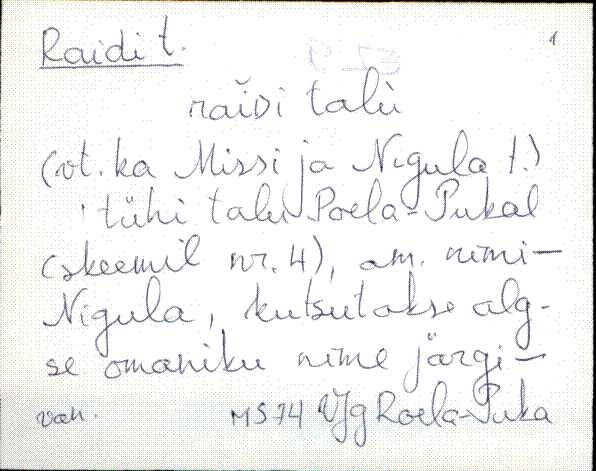 Raidi t. 1
raĭdi talù
(vt. ka Missi ja Nigula t.)
tühi talu Roela-Pukal
(skeemil nr. 4), am. nimi-
Nigula, kutsutakse alg-
se omaniku nime järgi-
van. MS 74 VJg Roela-Puka